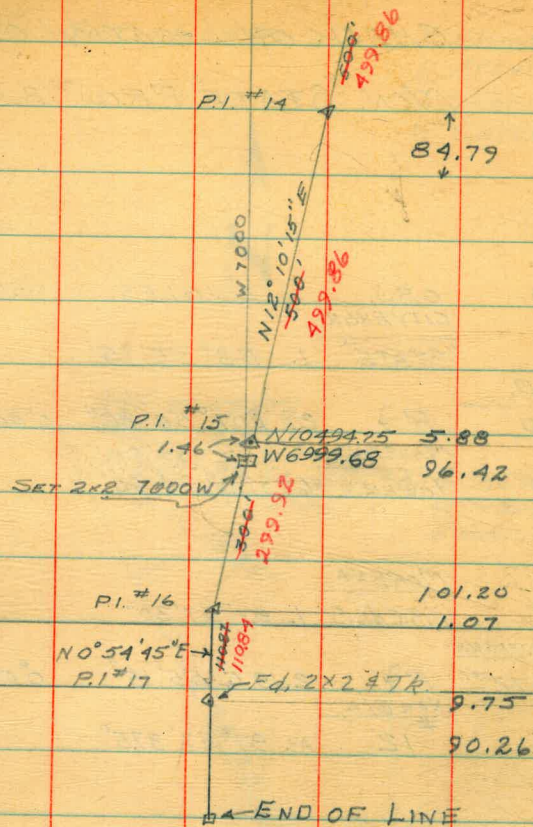 500'
499.86
P.I. #14
84.79
W 7000
N12° 10' 15" E
500'
499.86
P.I. #15
N10494.75 5.88
1.46
W6999.68
96.42
SET 2x2 7000W
300'
299.92
P.I. #16
101.20
1.07
N 0° 54' 45" E
110.84
P.I #17
Fd. 2x2 & Tk.
9.75
90.26
END OF LINE